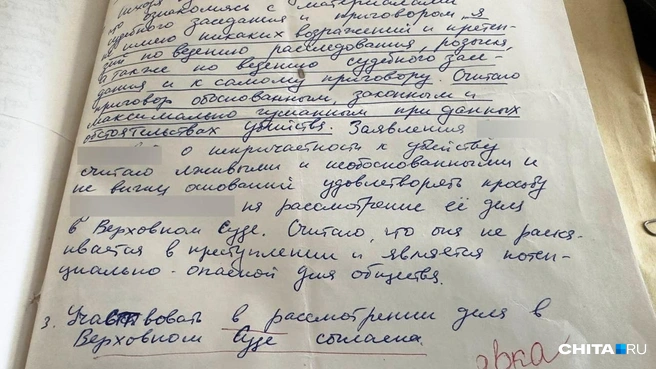 ознакомясь с материалами
судебного заседания и приговором я
не имею никаких возражений и претен-
зий по ведению расследования, розыска,
а также по ведению судебного засе-
дания и к самому приговору. Считаю
приговор обоснованным, законным и
максимально гуманным при данных
обстоятельствах убийства. Заявления
о непричастности к убийству
считаю лживыми и необоснованными и
не вижу оснований удовлетворять просьбу
на рассмотрение её дела
в Верховном Суде. Считаю, что она не раска-
ивается в преступлении и является потен-
циально-опасной для общества.
3. Участвовать в рассмотрении дела в
Верховном Суде согласна.
явка
CHITA.RU